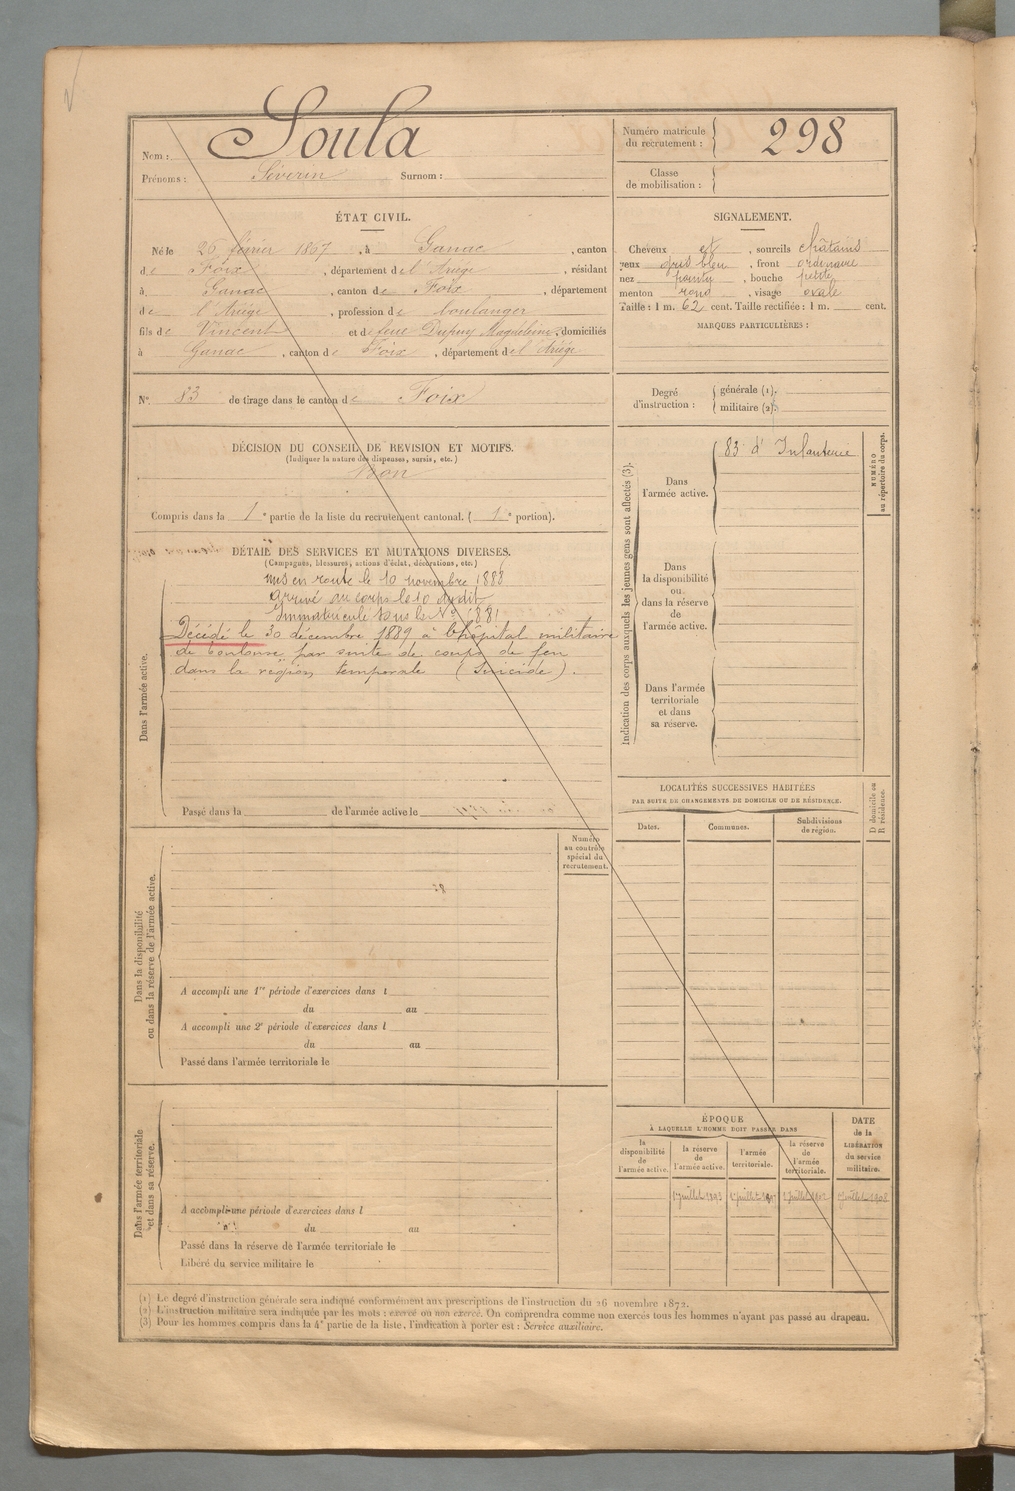 Nom : Soula
Prénoms : Séverin Surnom :
Numéro matricule du recrutement : 298
Classe de mobilisation :
ÉTAT CIVIL.
Né le 26 février 1867, à Ganac, canton
de Foix, département de l'Ariège, résidant
à Ganac, canton de Foix, département
de l'Ariège, profession de boulanger
fils de Vincent et de feue Dupuy Magdeleine, domiciliés
à Ganac, canton de Foix, département de l'Ariège
SIGNALEMENT.
Cheveux et, sourcils châtains
yeux gris bleu, front ordinaire
nez pointu, bouche petite
menton rond, visage ovale
Taille : 1 m. 62 cent. Taille rectifiée : 1 m. cent.
MARQUES PARTICULIÈRES :
N° 83 de tirage dans le canton de Foix
Degré d'instruction :
générale (1).
militaire (2).
DÉCISION DU CONSEIL DE REVISION ET MOTIFS.
(Indiquer la nature des dispenses, sursis, etc.)
Bon
Compris dans la 1e partie de la liste du recrutement cantonal. (1e portion).
DÉTAIL DES SERVICES ET MUTATIONS DIVERSES.
(Campagnes, blessures, actions d'éclat, décorations, etc.)
Dans l'armée active.
mis en route le 10 novembre 1888
arrivé au corps le 10 du dit
Immatriculé sous le N° 1881
Décédé le 30 décembre 1889 à l'hôpital militaire
de Toulouse par suite de coups de feu
dans la région temporale (Suicide).
Passé dans la de l'armée active le
Indication des corps auxquels les jeunes gens sont affectés (3).
Dans l'armée active.
83e d'Infanterie
NUMÉRO au répertoire du corps.
Dans la disponibilité ou dans la réserve de l'armée active.
Dans l'armée territoriale et dans sa réserve.
LOCALITÉS SUCCESSIVES HABITÉES
PAR SUITE DE CHANGEMENTS DE DOMICILE OU DE RÉSIDENCE.
Dates.
Communes.
Subdivisions de région.
D domicile ou R résidence.
Numéro au contrôle spécial du recrutement.
Dans la disponibilité ou dans la réserve de l'armée active.
A accompli une 1re période d'exercices dans l
du au
A accompli une 2e période d'exercices dans l
du au
Passé dans l'armée territoriale le
Dans l'armée territoriale et dans sa réserve.
A accompli une période d'exercices dans l
du au
Passé dans la réserve de l'armée territoriale le
Libéré du service militaire le
ÉPOQUE
À LAQUELLE L'HOMME DOIT PASSER DANS
la disponibilité de l'armée active.
la réserve de l'armée active.
l'armée territoriale.
la réserve de l'armée territoriale.
DATE de la LIBÉRATION du service militaire.
1 juillet 1893
1 juillet 1897
1 juillet 1902
1 juillet 1908
(1) Le degré d'instruction générale sera indiqué conformément aux prescriptions de l'instruction du 26 novembre 1872.
(2) L'instruction militaire sera indiquée par les mots : exercé ou non exercé. On comprendra comme non exercés tous les hommes n'ayant pas passé au drapeau.
(3) Pour les hommes compris dans la 4e partie de la liste, l'indication à porter est : Service auxiliaire.